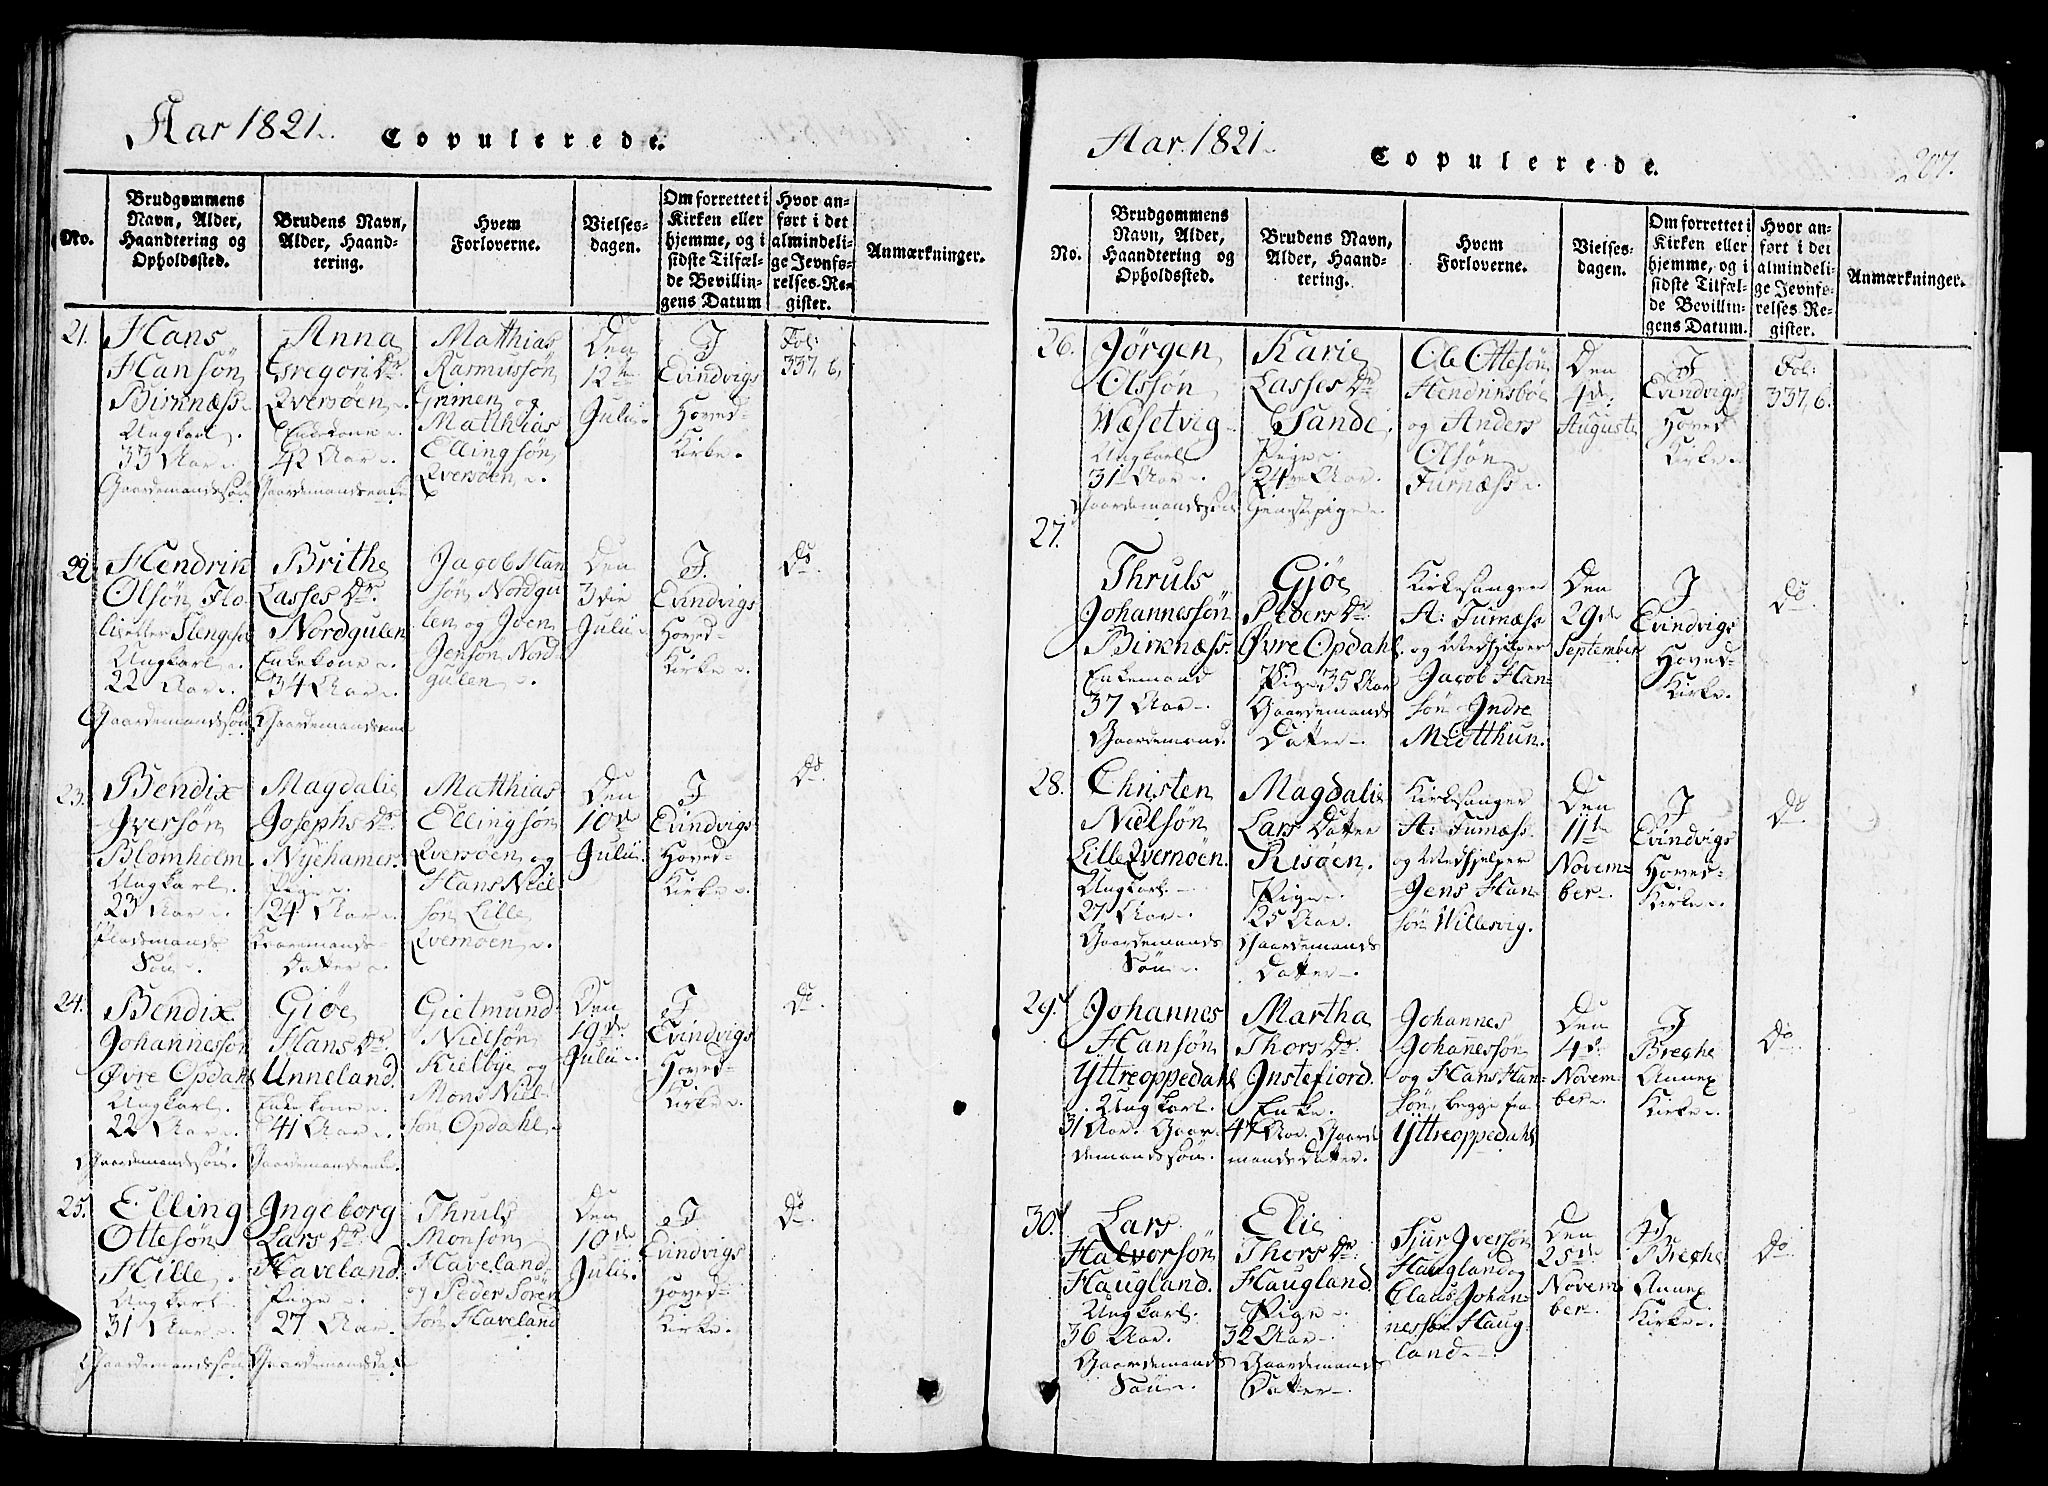 Aar 1821.
Copulerede.
No.
Brudgommens
Navn, Alder,
Haandtering og
Opholdssted.
Brudens Navn,
Alder, Haand-
tering.
Hvem
Forloverne.
Vielses-
dagen.
Om forrettet i
Kirken eller
hjemme, og i
sidste Tilfæl-
de Bevillin-
gens Datum
Hvor an-
ført i det
almindeli-
ge Jevnfø-
relses-Re-
gister.
Anmærkninger.
21.
Hans
Hansøn
Birknæss.
Ungkarl.
33 Aar.
Gaardemandssøn
Anna
Gregori Dr.
Qversöen.
Enkekone.
42 Aar.
Gaardemandsenke
Matthias
Rasmussøn
Grimen og
Matthias
Ellingsøn
Qversöen.
Den
12te
Julii.
I
Evindvigs
Hoved-
Kirke.
Fol:
337, 6,
22
Hendrik
Olsøn Flo-
Ungkarl.
22 Aar.
Gaardemandssøn
Brithe
Lasses Dr.
Nordgulen
Enkekone.
34 Aar.
Gaardemandsenke
Jacob Han
søn Nordgu
len og Joen
Jensøn Nord-
gulen.
Den
3die
Julii.
I.
Evindvigs
Hoved-
Kirke.
Do.
23.
Bendix
Iversøn
Blomholm.
Ungkarl.
23 Aar.
Pladsmands
Søn.
Magdalie
Josephs Dr.
Nyehamer.
Pige.
24 Aar.
Datter.
Matthias
Ellingsøn
Qversöen og
Hans Niel-
søn Lille
Qvernöen.
Den
10de
Julii.
I
Evindvigs
Hoved-
Kirke.
Do.
24.
Bendix
Johannessøn
Øvre Opdahl
Ungkarl.
22 Aar.
Gaardemandssøn.
Giøe
Hans Dr.
Unneland.
Enkekone.
41 Aar.
Gaardemandsenke.
Gietmund
Nielsøn
Kielbye og
Mons Niel-
søn Opdahl.
Den
19de
Julii.
I
Evindvigs
Hoved-
Kirke.
Do.
25.
Elling
Ottesøn
Hille.
Ungkarl.
31 Aar.
Gaardemandssøn
Ingeborg
Lars Dr.
Haveland.
Pige.
27 Aar.
Gaardemandsdat
Thruls
Monsøn
Haveland
og Peder Søren
søn Haveland
Den
10de
Julii.
I
Evindvigs
Hoved-
Kirke.
Do.
Aar. 1821.
Copulerede.
207.
No.
Brudgommens
Navn, Alder,
Haandtering og
Opholdssted.
Brudens Navn,
Alder, Haand-
tering.
Hvem
Forloverne.
Vielses-
dagen.
Om forrettet i
Kirken eller
hjemme, og i
sidste Tilfæl-
de Bevillin-
gens Datum.
Hvor an-
ført i det
almindeli-
ge Jevnfø-
relses Re-
gister.
Anmærkninger.
26.
Jørgen
Olssøn
Wæsetvig
Ungkarl
31 Aar.
Gaardemandssøn
Karie
Lasses Dr.
Sande.
Pige.
24re Aar.
Ole Ottesøn
Hendriksbøe
og Anders
Olsøn
Furnæss.
Den
4de
Augusti
I
Evindvigs
Hoved
Kirke.
Fol:
337, 6.
27.
Thruls
Johannessøn
Birknæss.
Enkemand
37 Aar.
Gaardemand.
Gjøe
Peders Dr.
Øvre Opdahl.
Pige. 35 Aar
Gaardemands
Datter.
Kirkesanger
A: Furnæss
og Medhjelper
Jacob Han-
søn Indre
Mictthun.
Den
29de
September
I
Evindvigs
Hoved-
Kirke.
Do.
28.
Christen
Nielsøn
Lille Qvernöen.
Ungkarl.
27 Aar.
Gaardemands
Søn.
Magdalie
Lars Datter
Risöen.
Pige.
25 Aar.
Gaardemands
Datter.
Kirkesanger
A: Furnæss.
og Medhjelper
Jens Han-
søn Willesvig.
Den
11te
Novem-
ber.
I
Evindvigs
Hoved-
Kirke.
Do.
29.
Johannes
Hansøn
Yttreoppedahl
Ungkarl.
31 Aar. Gaar-
demandssøn.
Martha
Thors Dr.
Instefiord.
Enke.
47 Aar. Gaarde
mands Datter.
Johannes
Johannessøn
og Hans Han-
søn, begge fra
Yttreoppedahl
Den
4de
Novem-
ber.
I
Breche
Annex
Kirke.
Do.
30.
Lars
Halvorsøn
Haugland.
Ungkarl.
36 Aar.
Gaardemands
Søn.
Elie
Thers Dr.
Haugland
Pige.
32 Aar.
Gaardemands
Datter.
Sjur Iversøn
Haugland og
Claus Johan-
nessøn Haug-
land.
Den
25de
Novem
ber.
I
Breche
Annex
Kirke.
Do